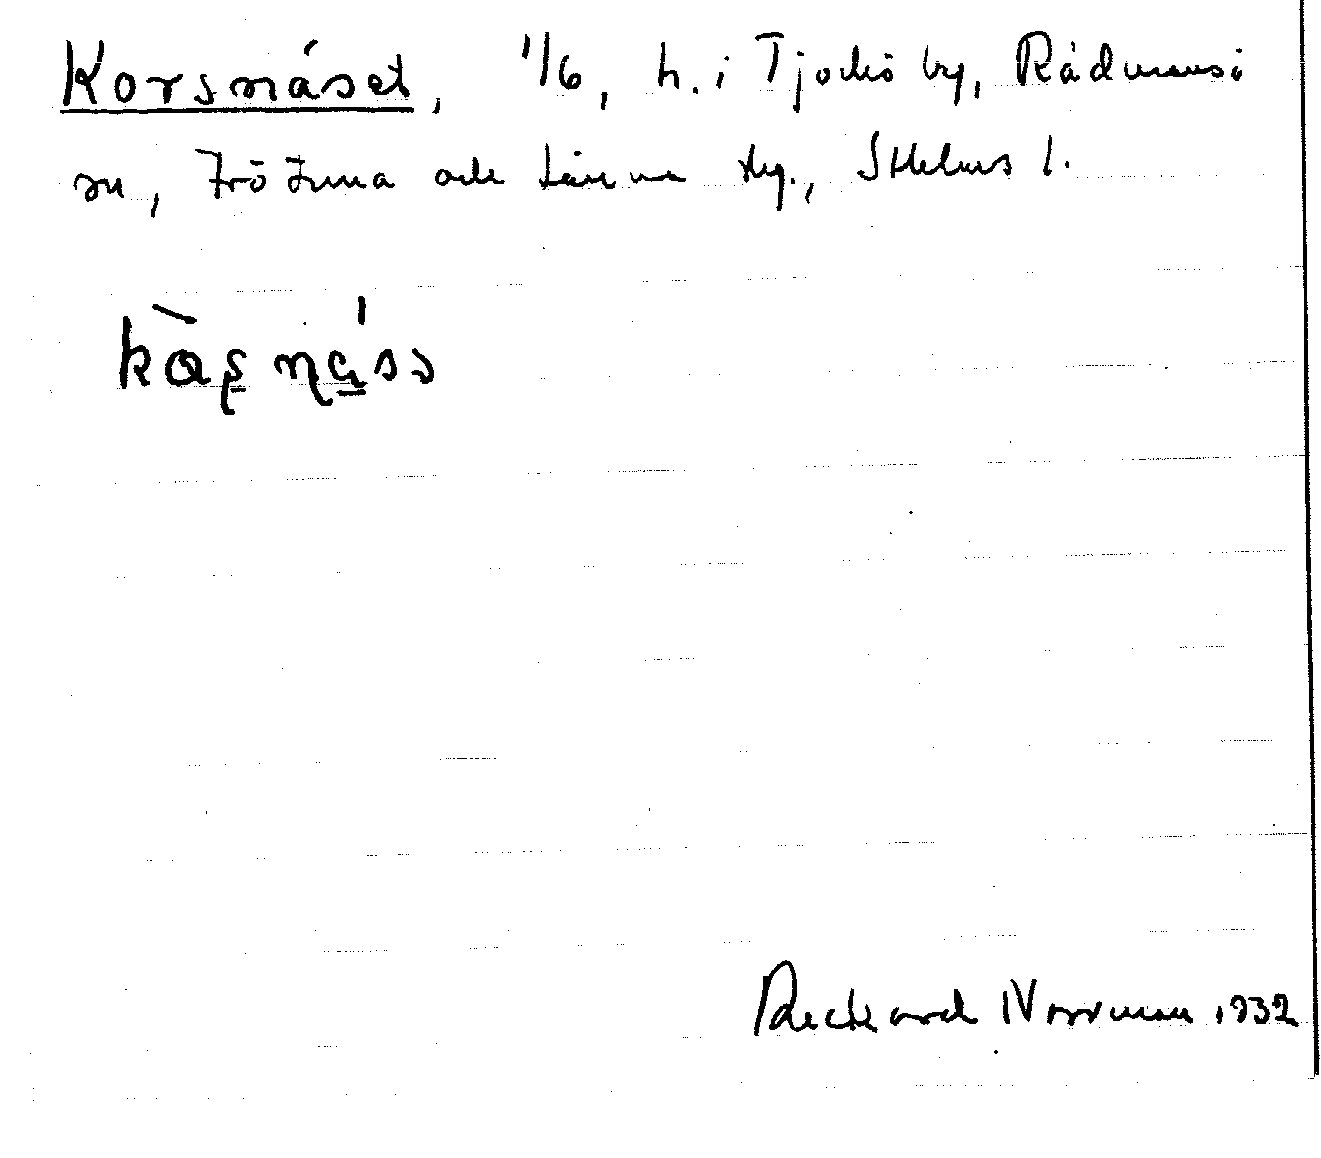 Korsnäset, 1/6, h. i Tjockö by, Rådmansö
sn, Frötuna och Länna skg., Sthlms l.
Rickard Norrman 1932